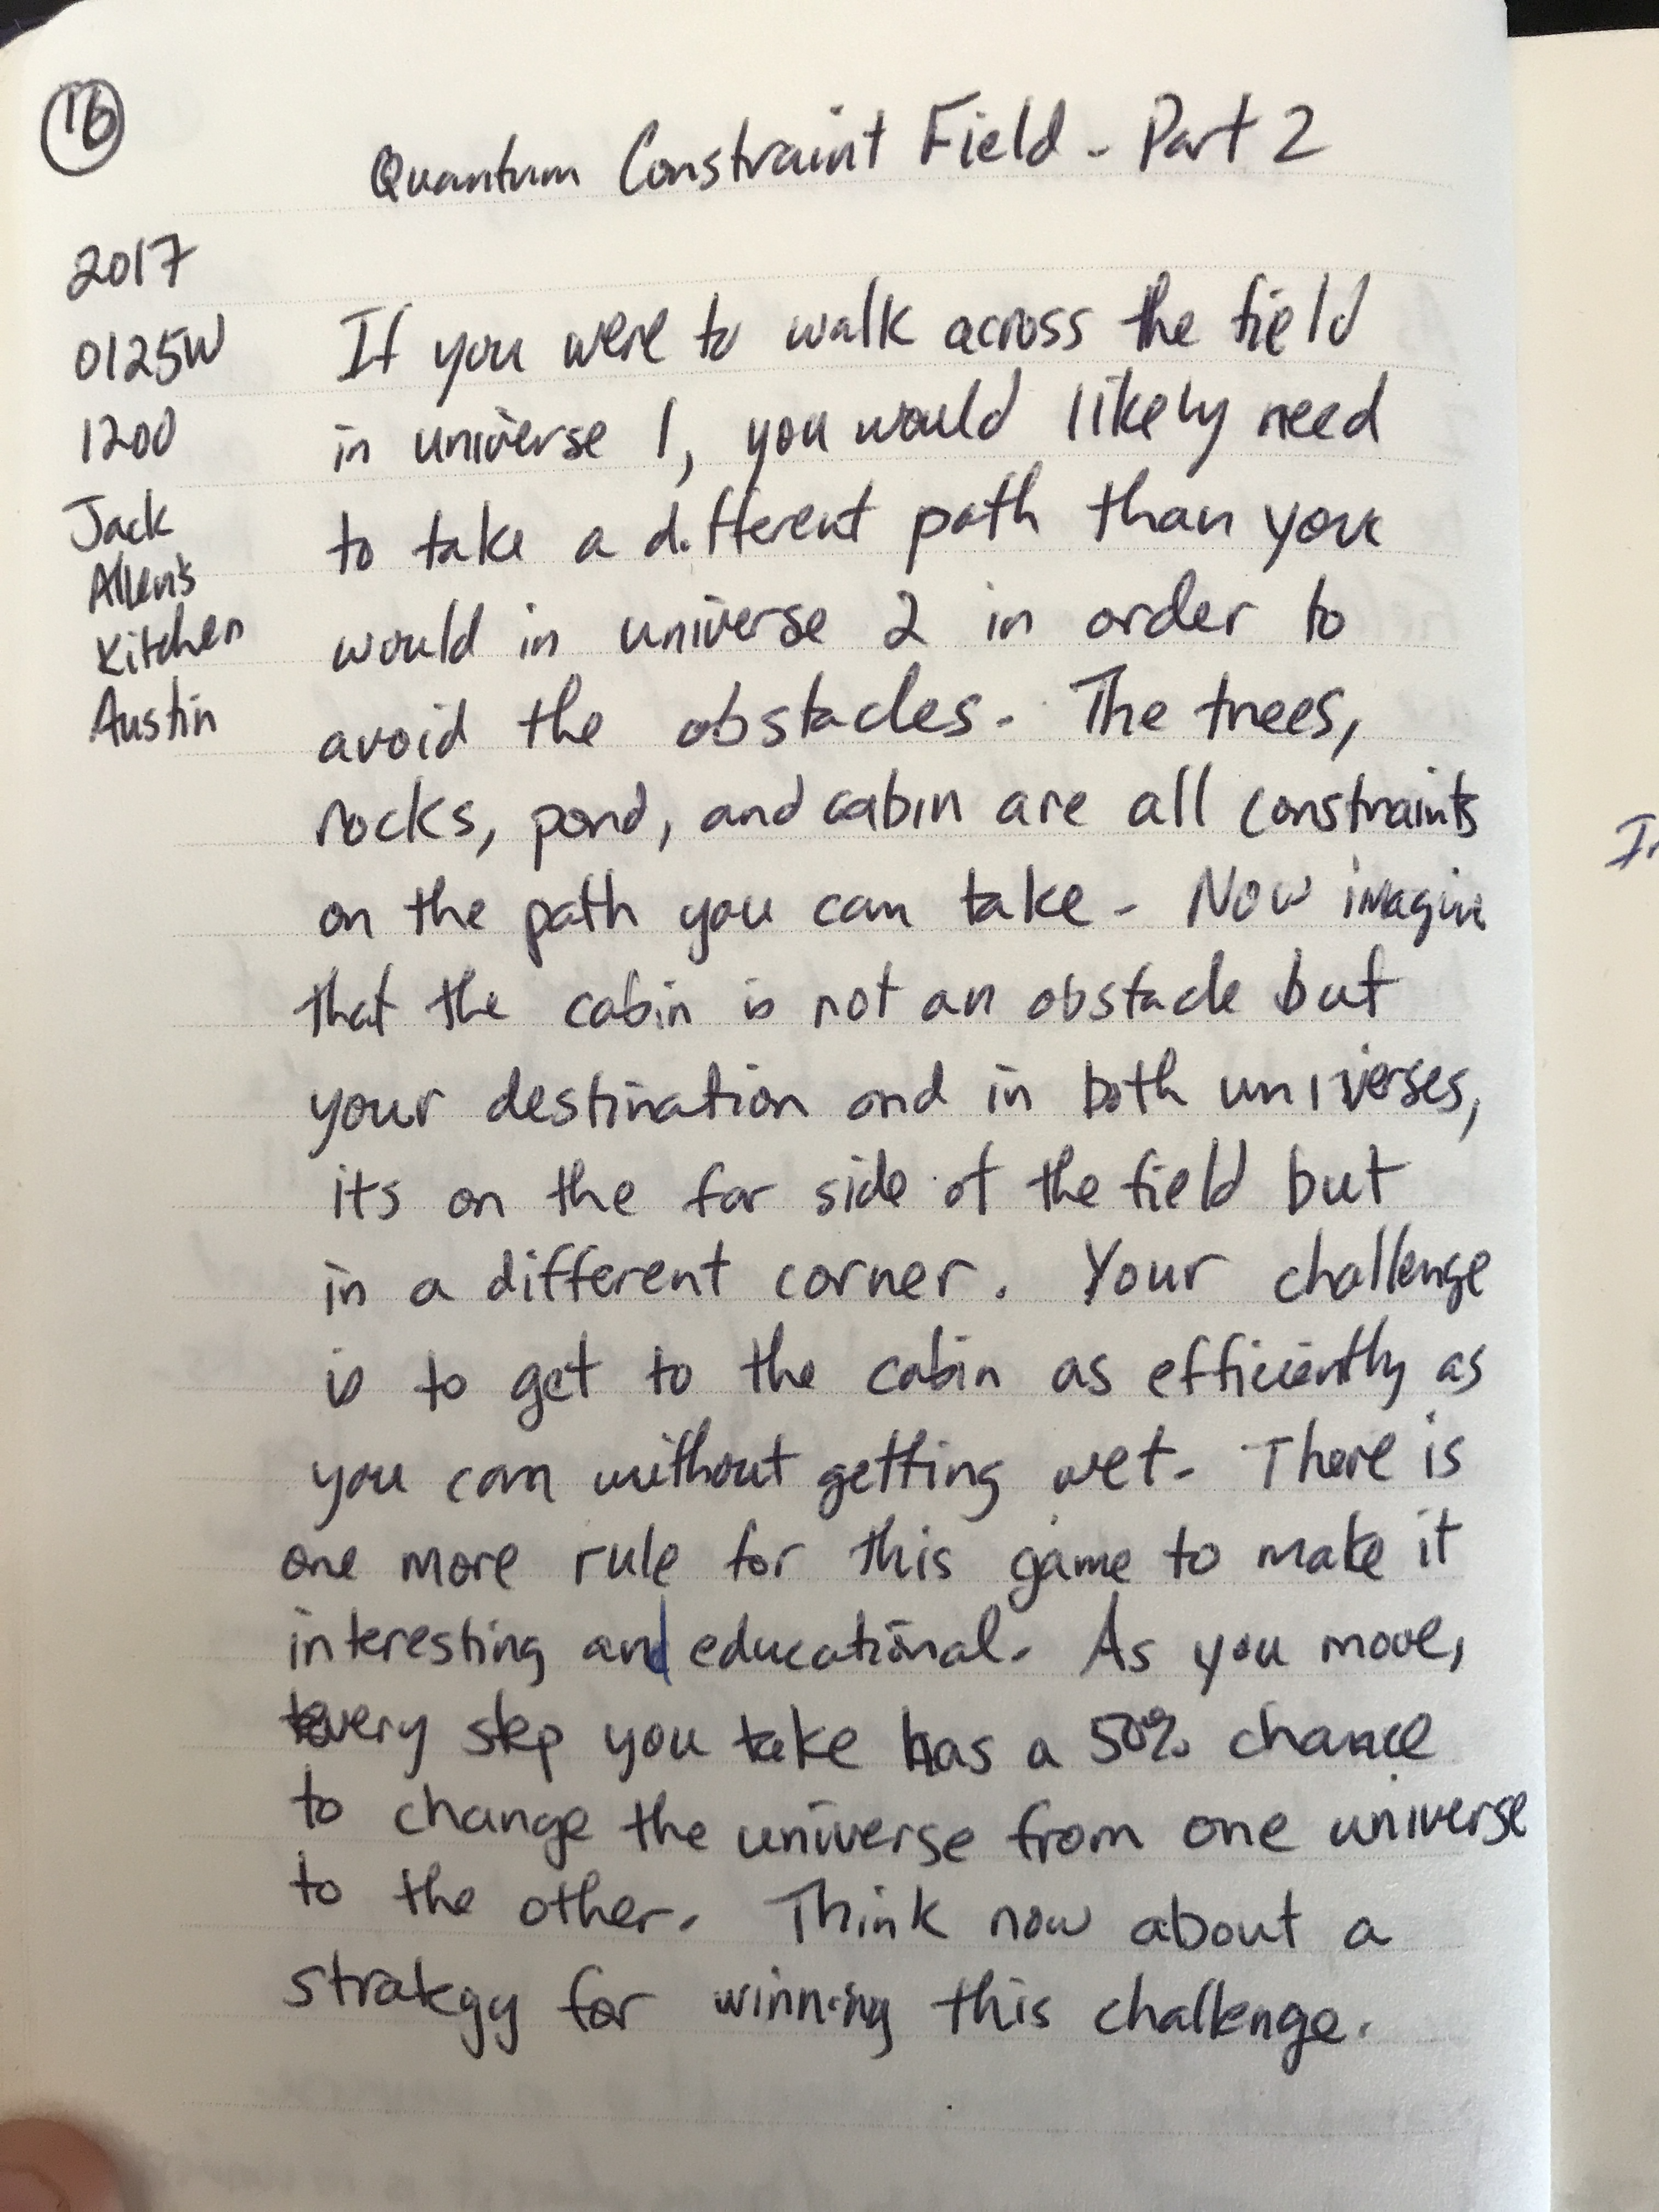 16
Quantum Constraint Field - Part 2
2017
0125W
1200
Jack
Allen's
Kitchen
Austin
If you were to walk across the field
in universe 1, you would likely need
to take a different path than you
would in universe 2 in order to
avoid the obstacles. The trees,
rocks, pond, and cabin are all constraints
on the path you can take. Now imagine
that the cabin is not an obstacle but
your destination and in both universes,
its on the far side of the field but
in a different corner. Your challenge
is to get to the cabin as efficiently as
you can without getting wet. There is
one more rule for this game to make it
interesting and educational. As you move,
every step you take has a 50% chance
to change the universe from one universe
to the other. Think now about a
strategy for winning this challenge.